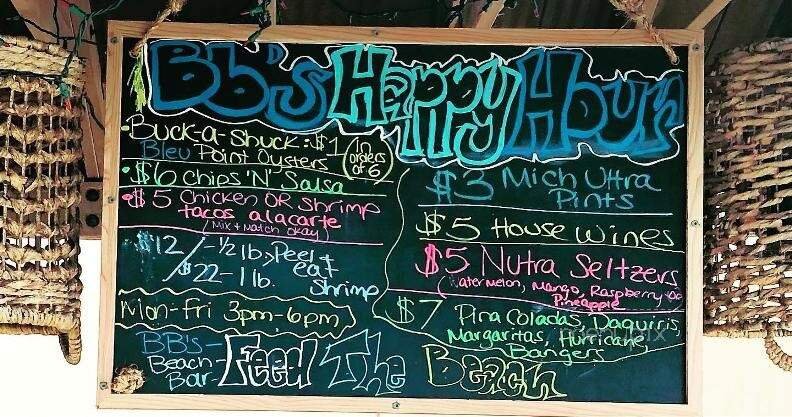 Bb's Happy Hour
Buck-a-Shuck: $1
Bleu Point Oysters
(in
orders
of 6)
$6 Chips 'N' Salsa
$5 Chicken OR Shrimp
tacos alacarte
(Mix + Match okay)
$12 - 1/2 lb. Peel +
eat
$22 - 1 lb. Shrimp
Mon-Fri 3pm-6pm
BB's-
Beach-
Bar-
Feed The Beach
$3 Mich Ultra
Pints
$5 House wines
$5 Nutra Seltzers
(Watermelon, Mango, Raspberry,
Pineapple
$7 Pina Coladas, Daquiris,
Margaritas, Hurricane,
Bangers